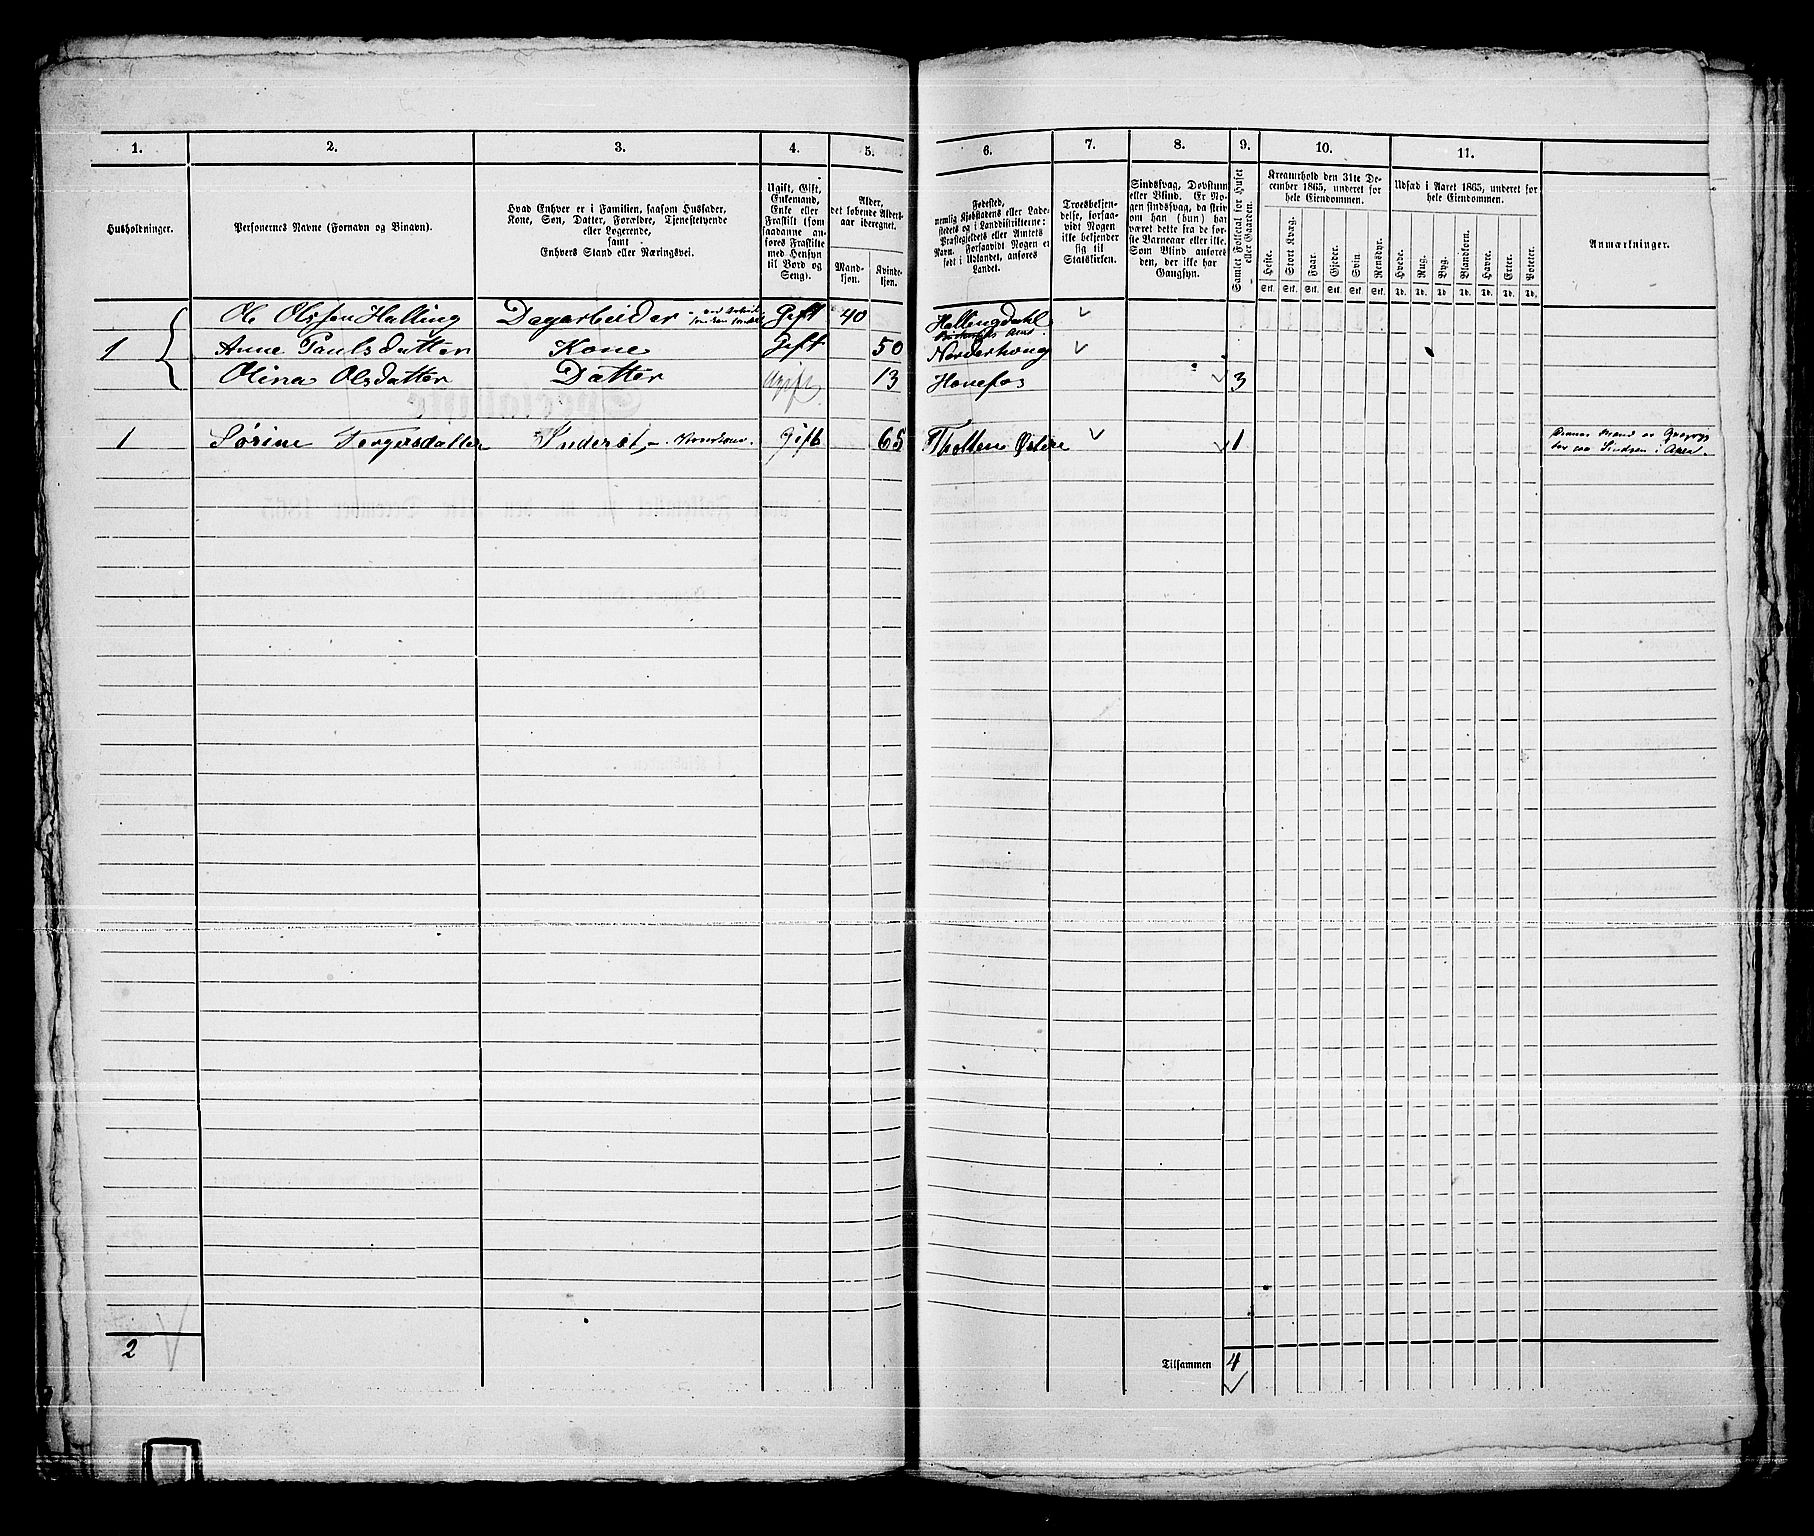 1.
2.
3.
4.
5.
6.
7.
8.
9.
10.
11.
Husholdninger.
Personernes Navne (Fornavn og Binavn).
Hvad Enhver er i Familien, saasom Husfader,
Kone, Søn, Datter, Forældre, Tjenestetyende
eller Logerende,
samt
Enhvers Stand eller Næringsvei.
Ugift, Gift,
Enkemand,
Enke eller
Fraskilt (som
saadanne an-
føres Fraskilte
med Hensyn
til Bord og
Seng).
Alder,
det løbende Alders-
aar iberegnet.
Mand-
kjøn.
Kvinde-
kjøn.
Fødested,
nemlig Kjøbstadens eller Lade-
stedets og i Landdistrikterne:
Præstegjeldets eller Annexets
Navn. Forsaavidt Nogen er
født i Udlandet, anføres
Landet.
Troesbekjen-
delse, forsaa-
vidt Nogen
ikke bekjender
sig til
Statskirken.
Sindssvag, Døvstum
eller Blind. Er No-
gen sindssvag, da skriv
om han (hun) har
været dette fra de før-
ste Barneaar eller ikke.
Som Blind anføres
den, der ikke har
Gangsyn.
Samlet Folketal for Huset
eller Gaarden.
Kreaturhold den 31te De-
cember 1865, underet for
hele Eiendommen.
Heste.
Stort Kvæg.
Faar.
Gjeder.
Svin.
Rensdyr.
Stk. Stk. Stk. Stk. Stk. Stk.
Udsæd i Aaret 1865, underet for
hele Eiendommen.
Hvede.
Rug.
Byg.
Blandkorn.
Havre.
Erter.
Poteter.
Td. Td. Td. Td. Td. Td. Td.
Anmærkninger.
Ole Olsen Halling Dagarbeider Gift 40 Hallingdahl
1 Anne Paulsdatter Kone Gift 50 Norderhoug
Olina Olsdatter Datter Ugift 13 Hønefos 3
1 Sørine Torgersdatter Inderst Gift 65 Thotten Østere 1
Dennes Mand er
paa i Aaen
2
Tilsammen 4